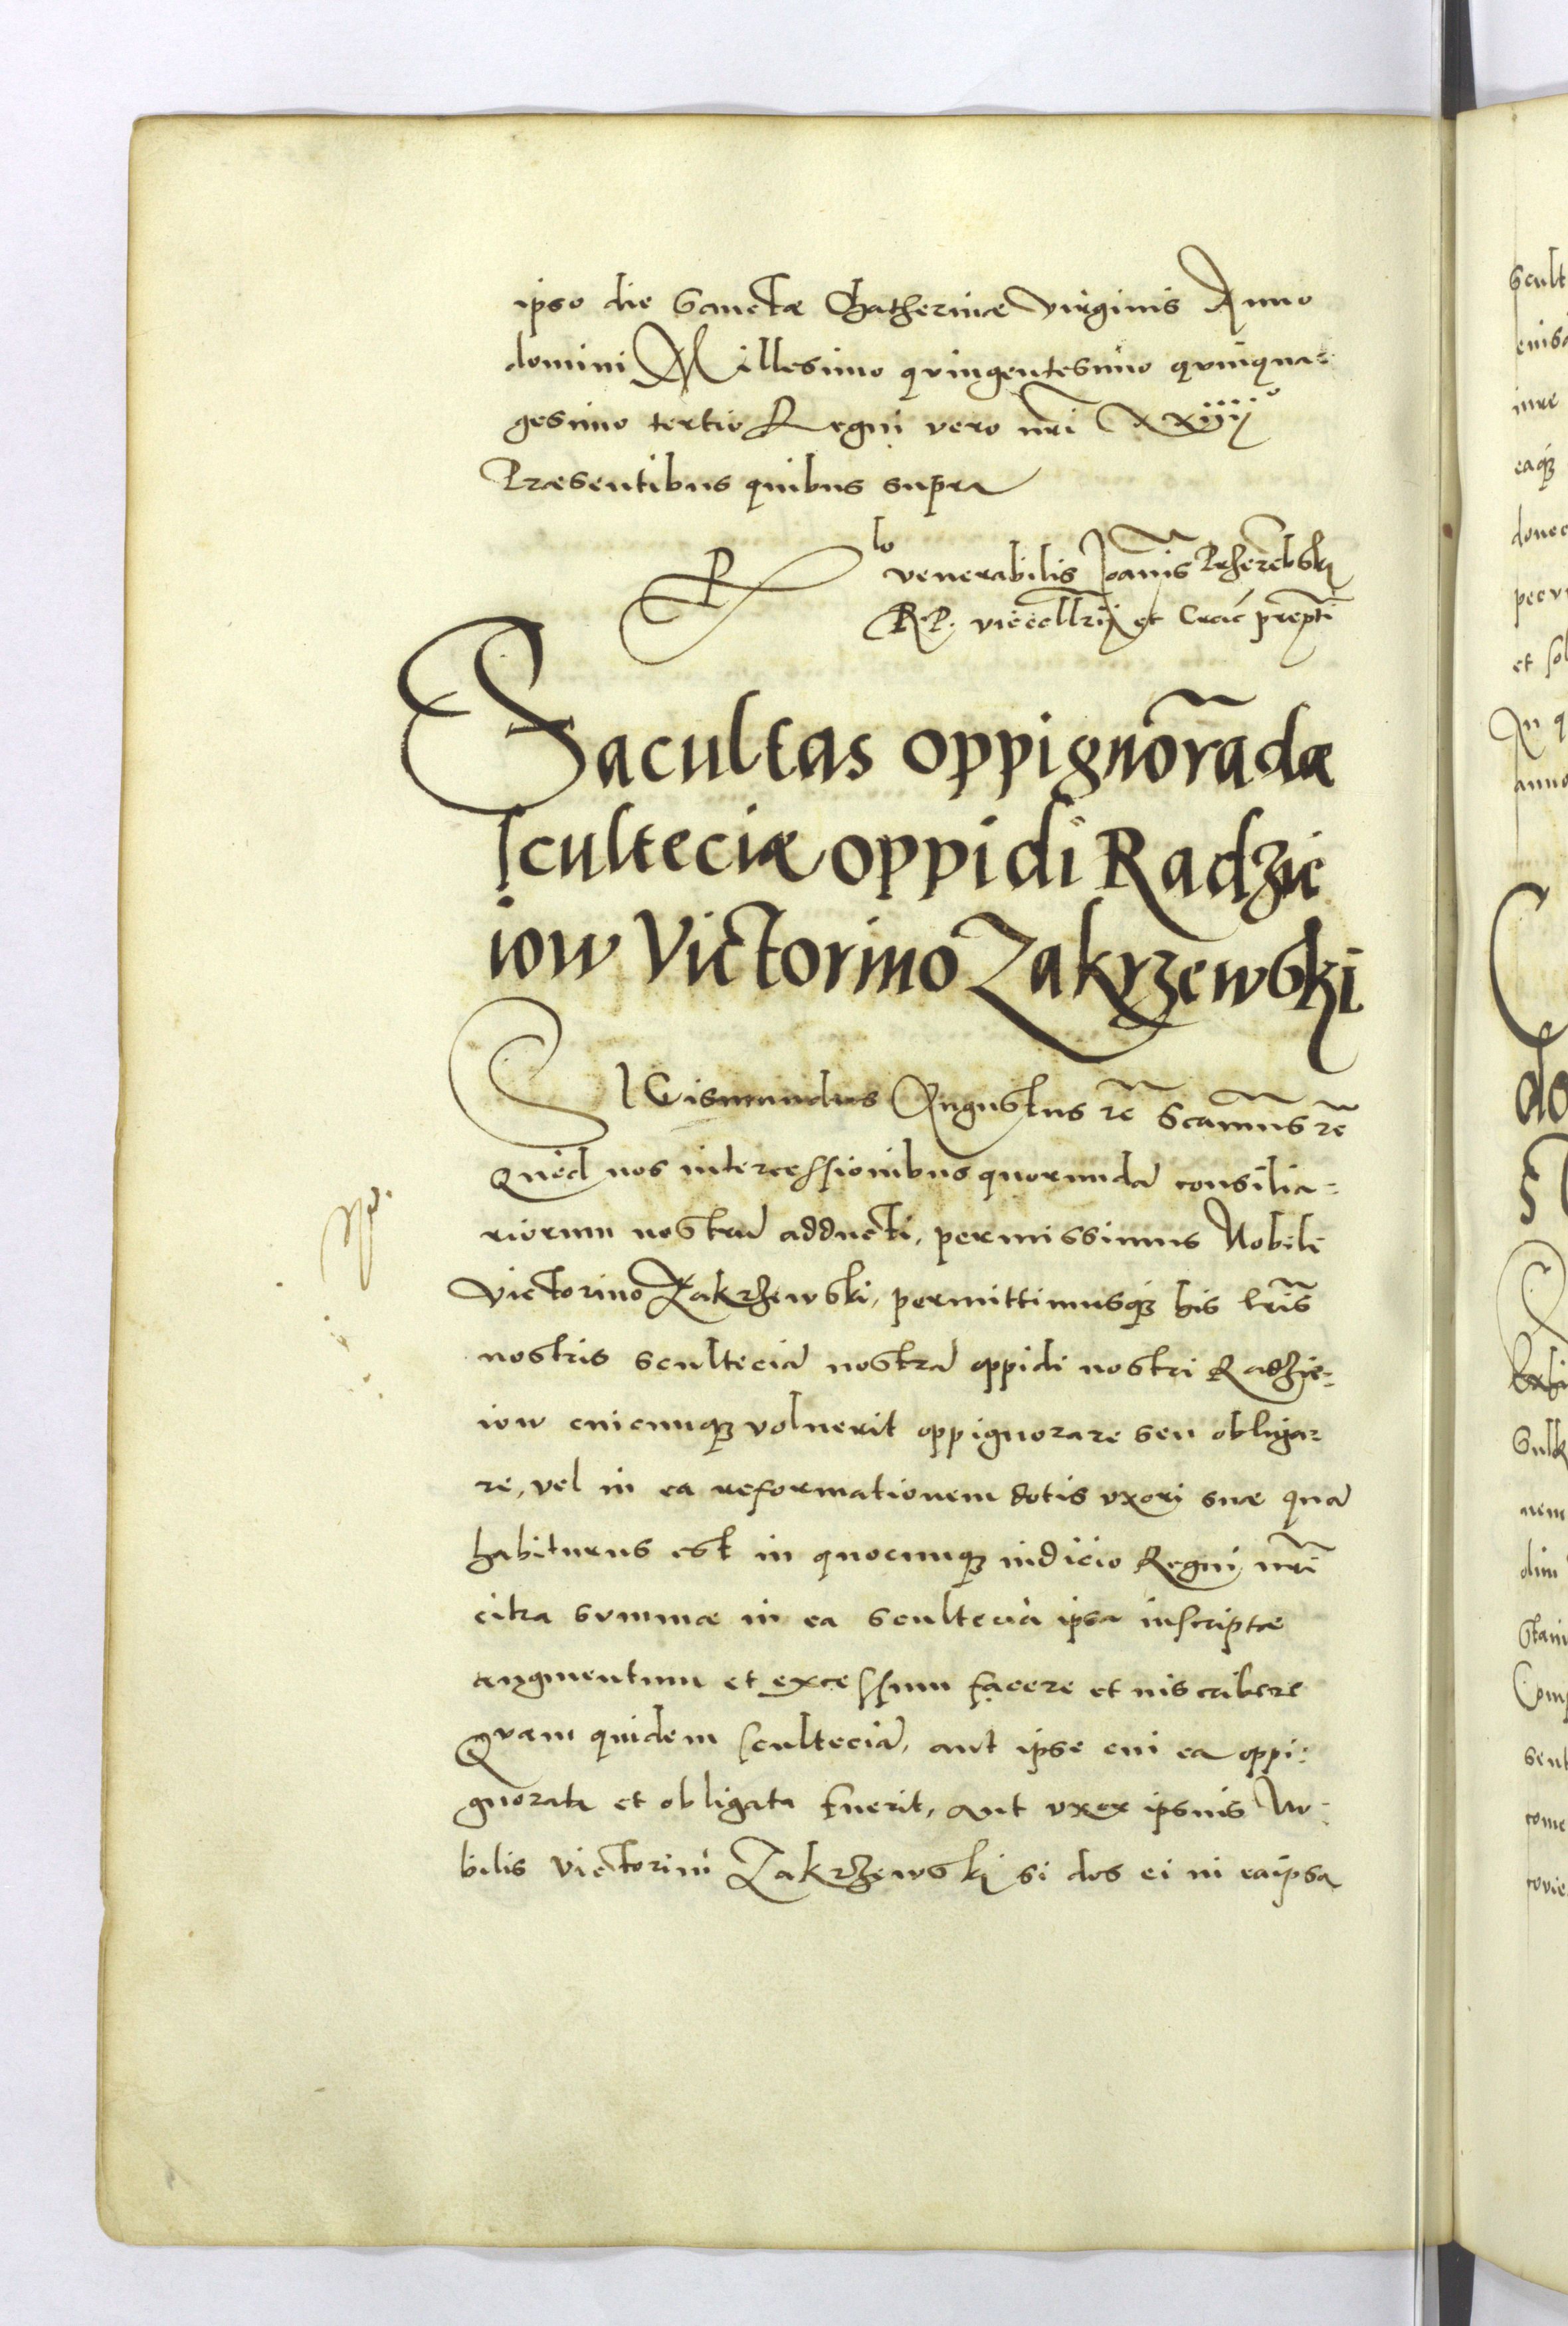 ipso die Sanctæ Chatherinæ virginis Anno
domini Millesimo quingentesimo quinqua=
gesimo tertio Regni vero nrĩ XXIIII°
Præsentibus quibus supra
Rlo venerabilis Joãnis Prherẽbski
R. P. vicecellrij et Crac̃ prepti
Facultas oppignõrãdæ
sculteciæ oppidi Radzie
iow Victorino Zakrzewski
SIGismundus Augustus rẽ Scamus rẽ
Quod nos intercessionibus quorundã consilia=
riorum nostrũ adducti, permissimus Nobili
victorino Zakrzewski, permittimusq; his lrĩs
nostris sculteciã nostrã oppidi nostri Radzie=
iow cuicumq; voluerit oppignorare seu obliga=
re, vel in ea reformationem dotis vxori suæ quã
habiturus est in quocumq; iudicio Regni nrĩ
citra summæ in ea scultecia ipsa inscriptæ
augmentum et excessum facere et inscribere
Quam quidem sculteciã, aut ipse cui ea oppi=
gnorata et obligata fuerit, aut vxor ipsius No=
bilis victorini Zakrzewski si dos ei in ea ipsa